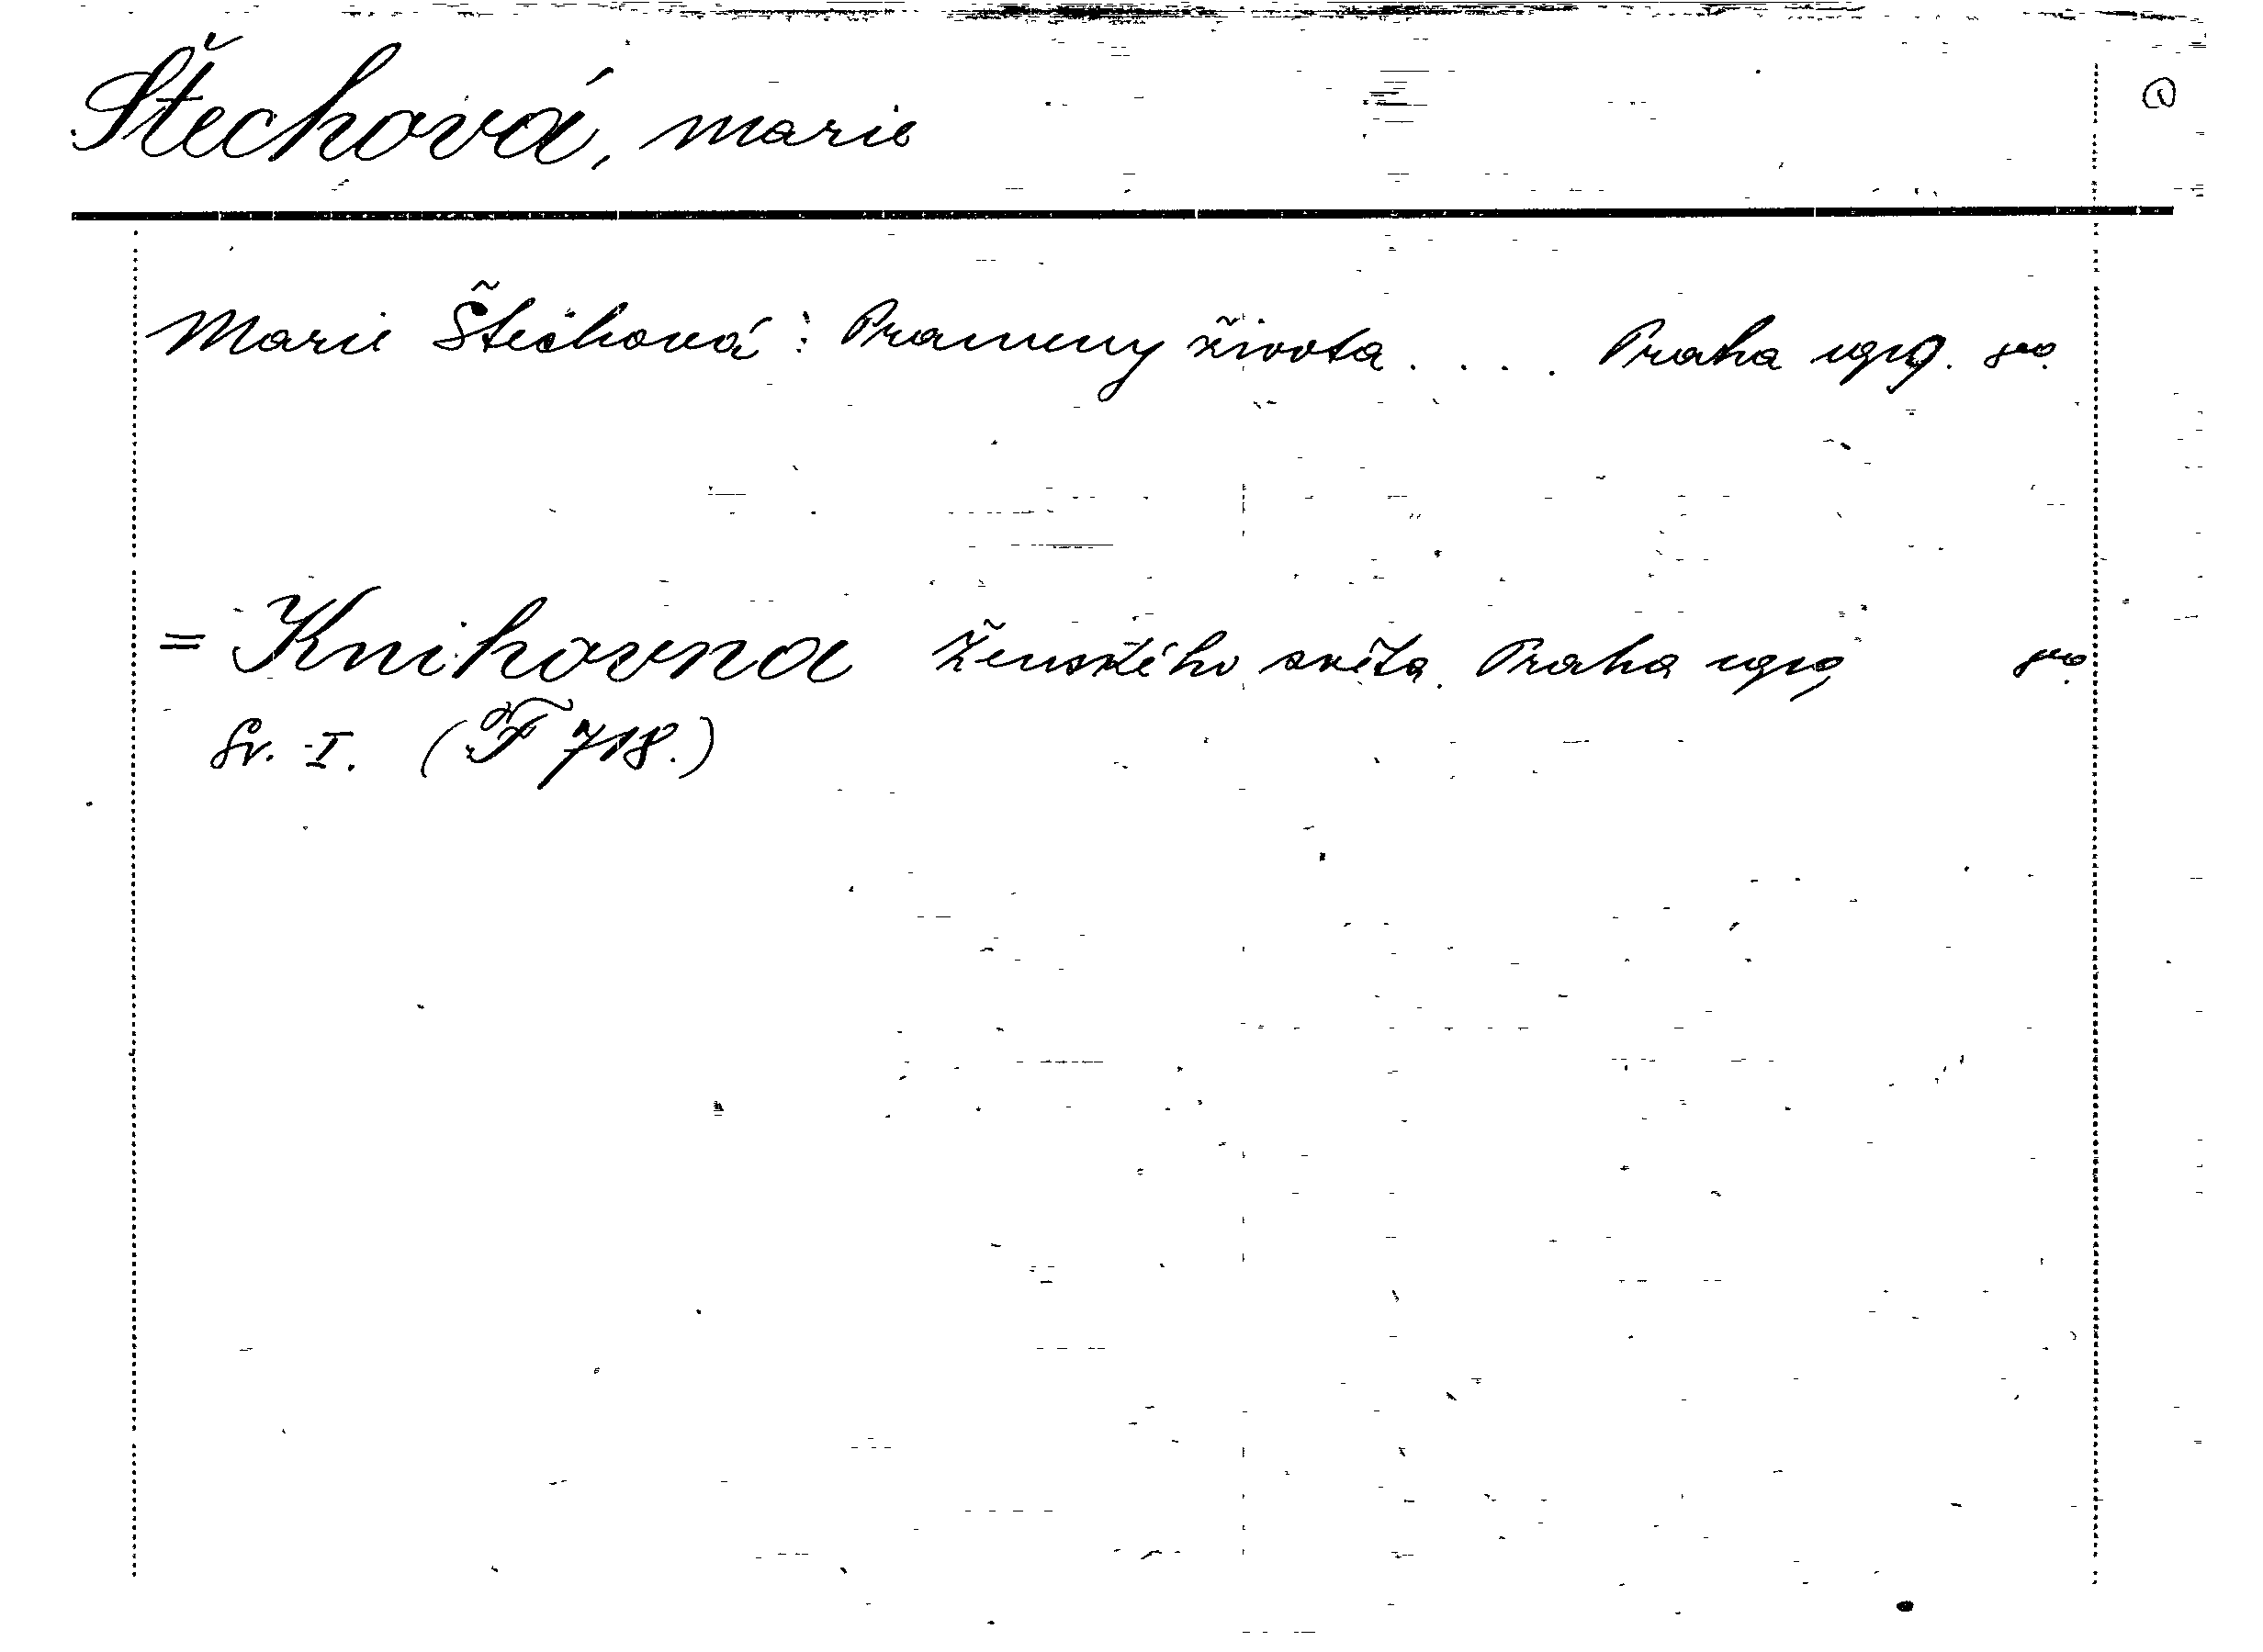 Štechová, Marie
Marie Štechová: Prameny života .... Praha 1919. 8vo.
= Knihovna Ženského světa. Praha 1919 8vo.
Sv. I. (F 718.)